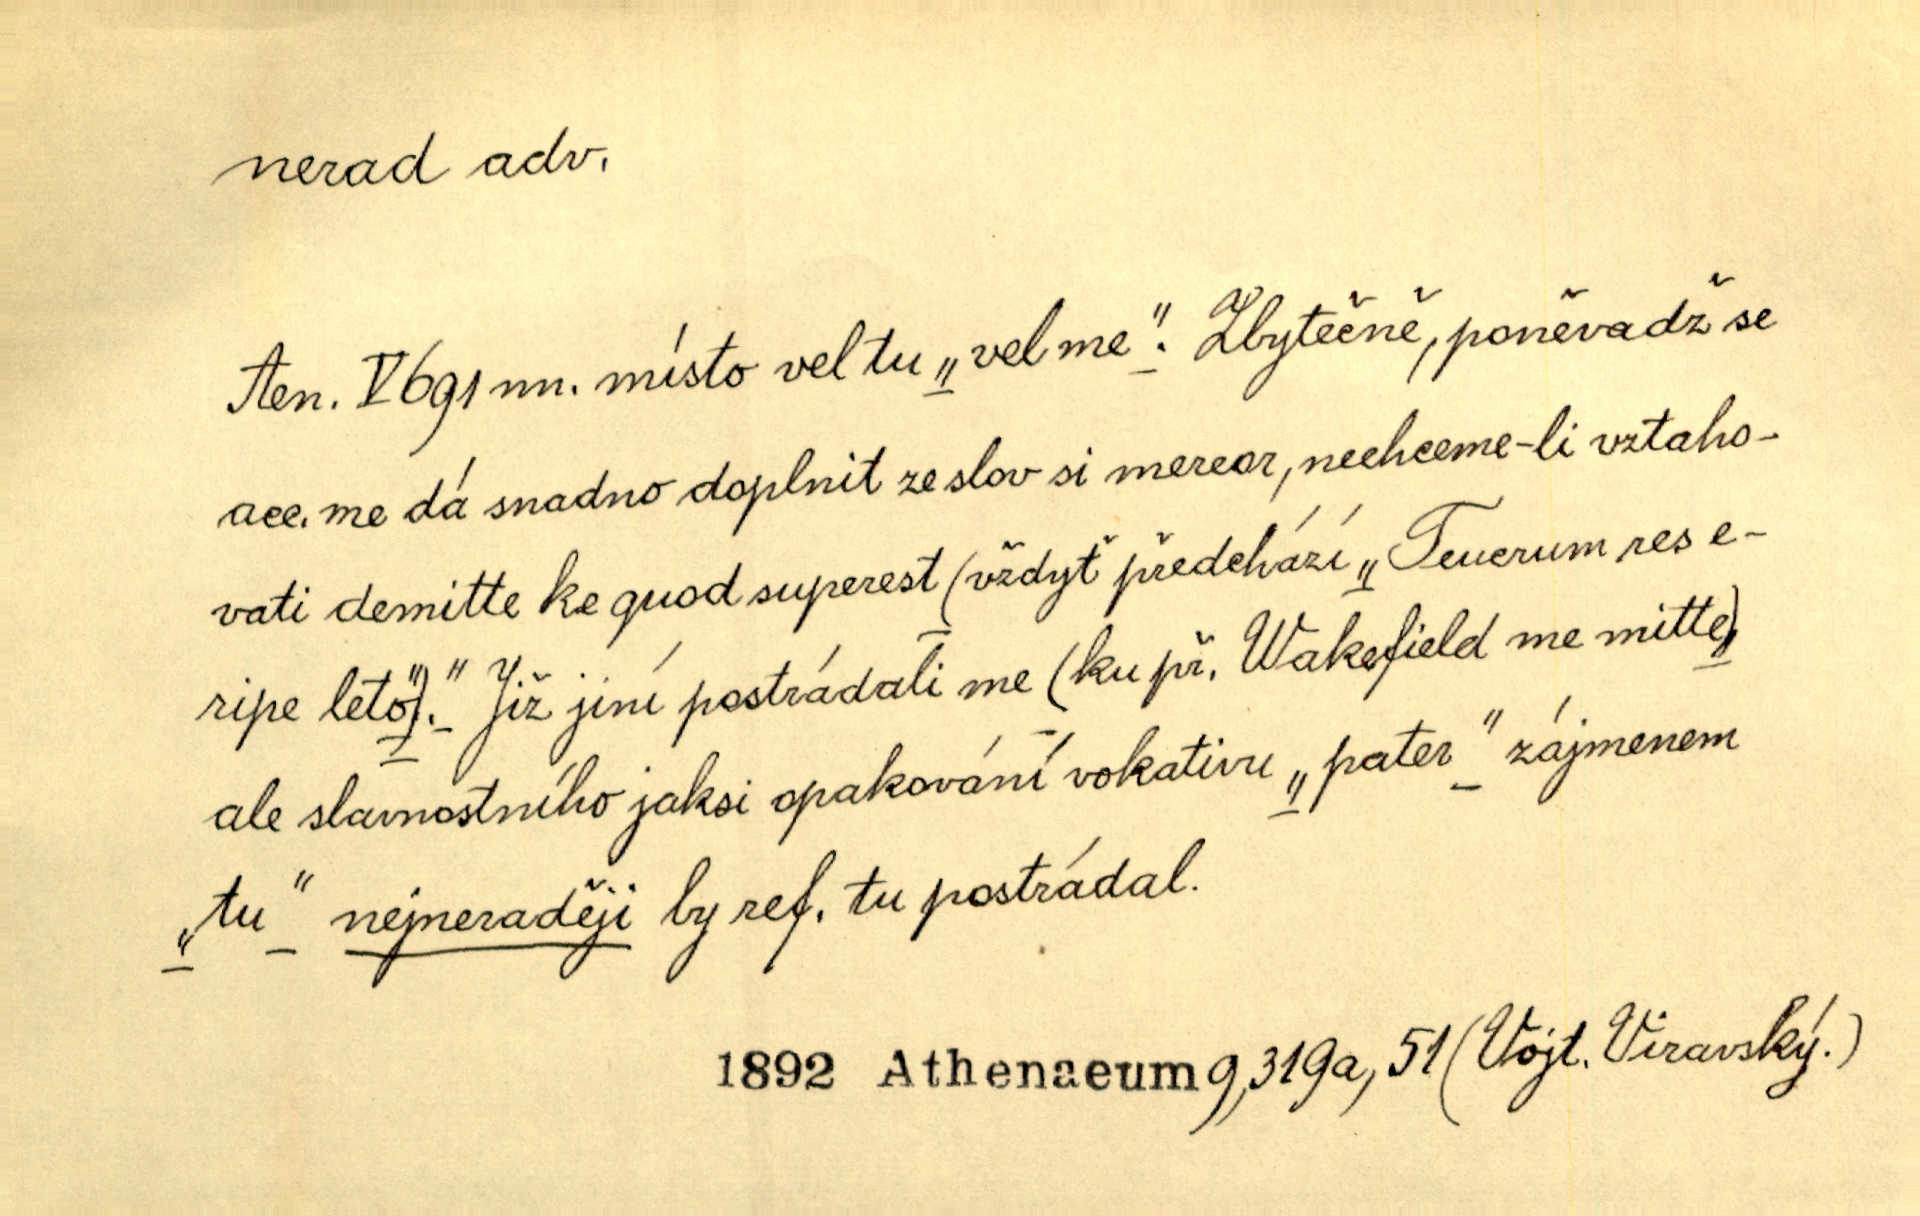 nerad adv.
Aen. V 691 nn. místo vel tu „vel me“. Zbytečně, poněvadž se
acc. me dá snadno doplnit ze slov si mereor, nechceme-li vztaho-
vati demitte ke quod superest (vždyť předchází „Teucrum res e-
ripe leto“).“ Již jiní postrádali me (ku př. Wakefield me mitte),
ale slavnostního jaksi opakování vokativu „pater“ zájmenem
„tu“ nejneraději by ref. tu postrádal.
1892 Athenaeum 9, 319a, 51 (Vojt. Viravský.)